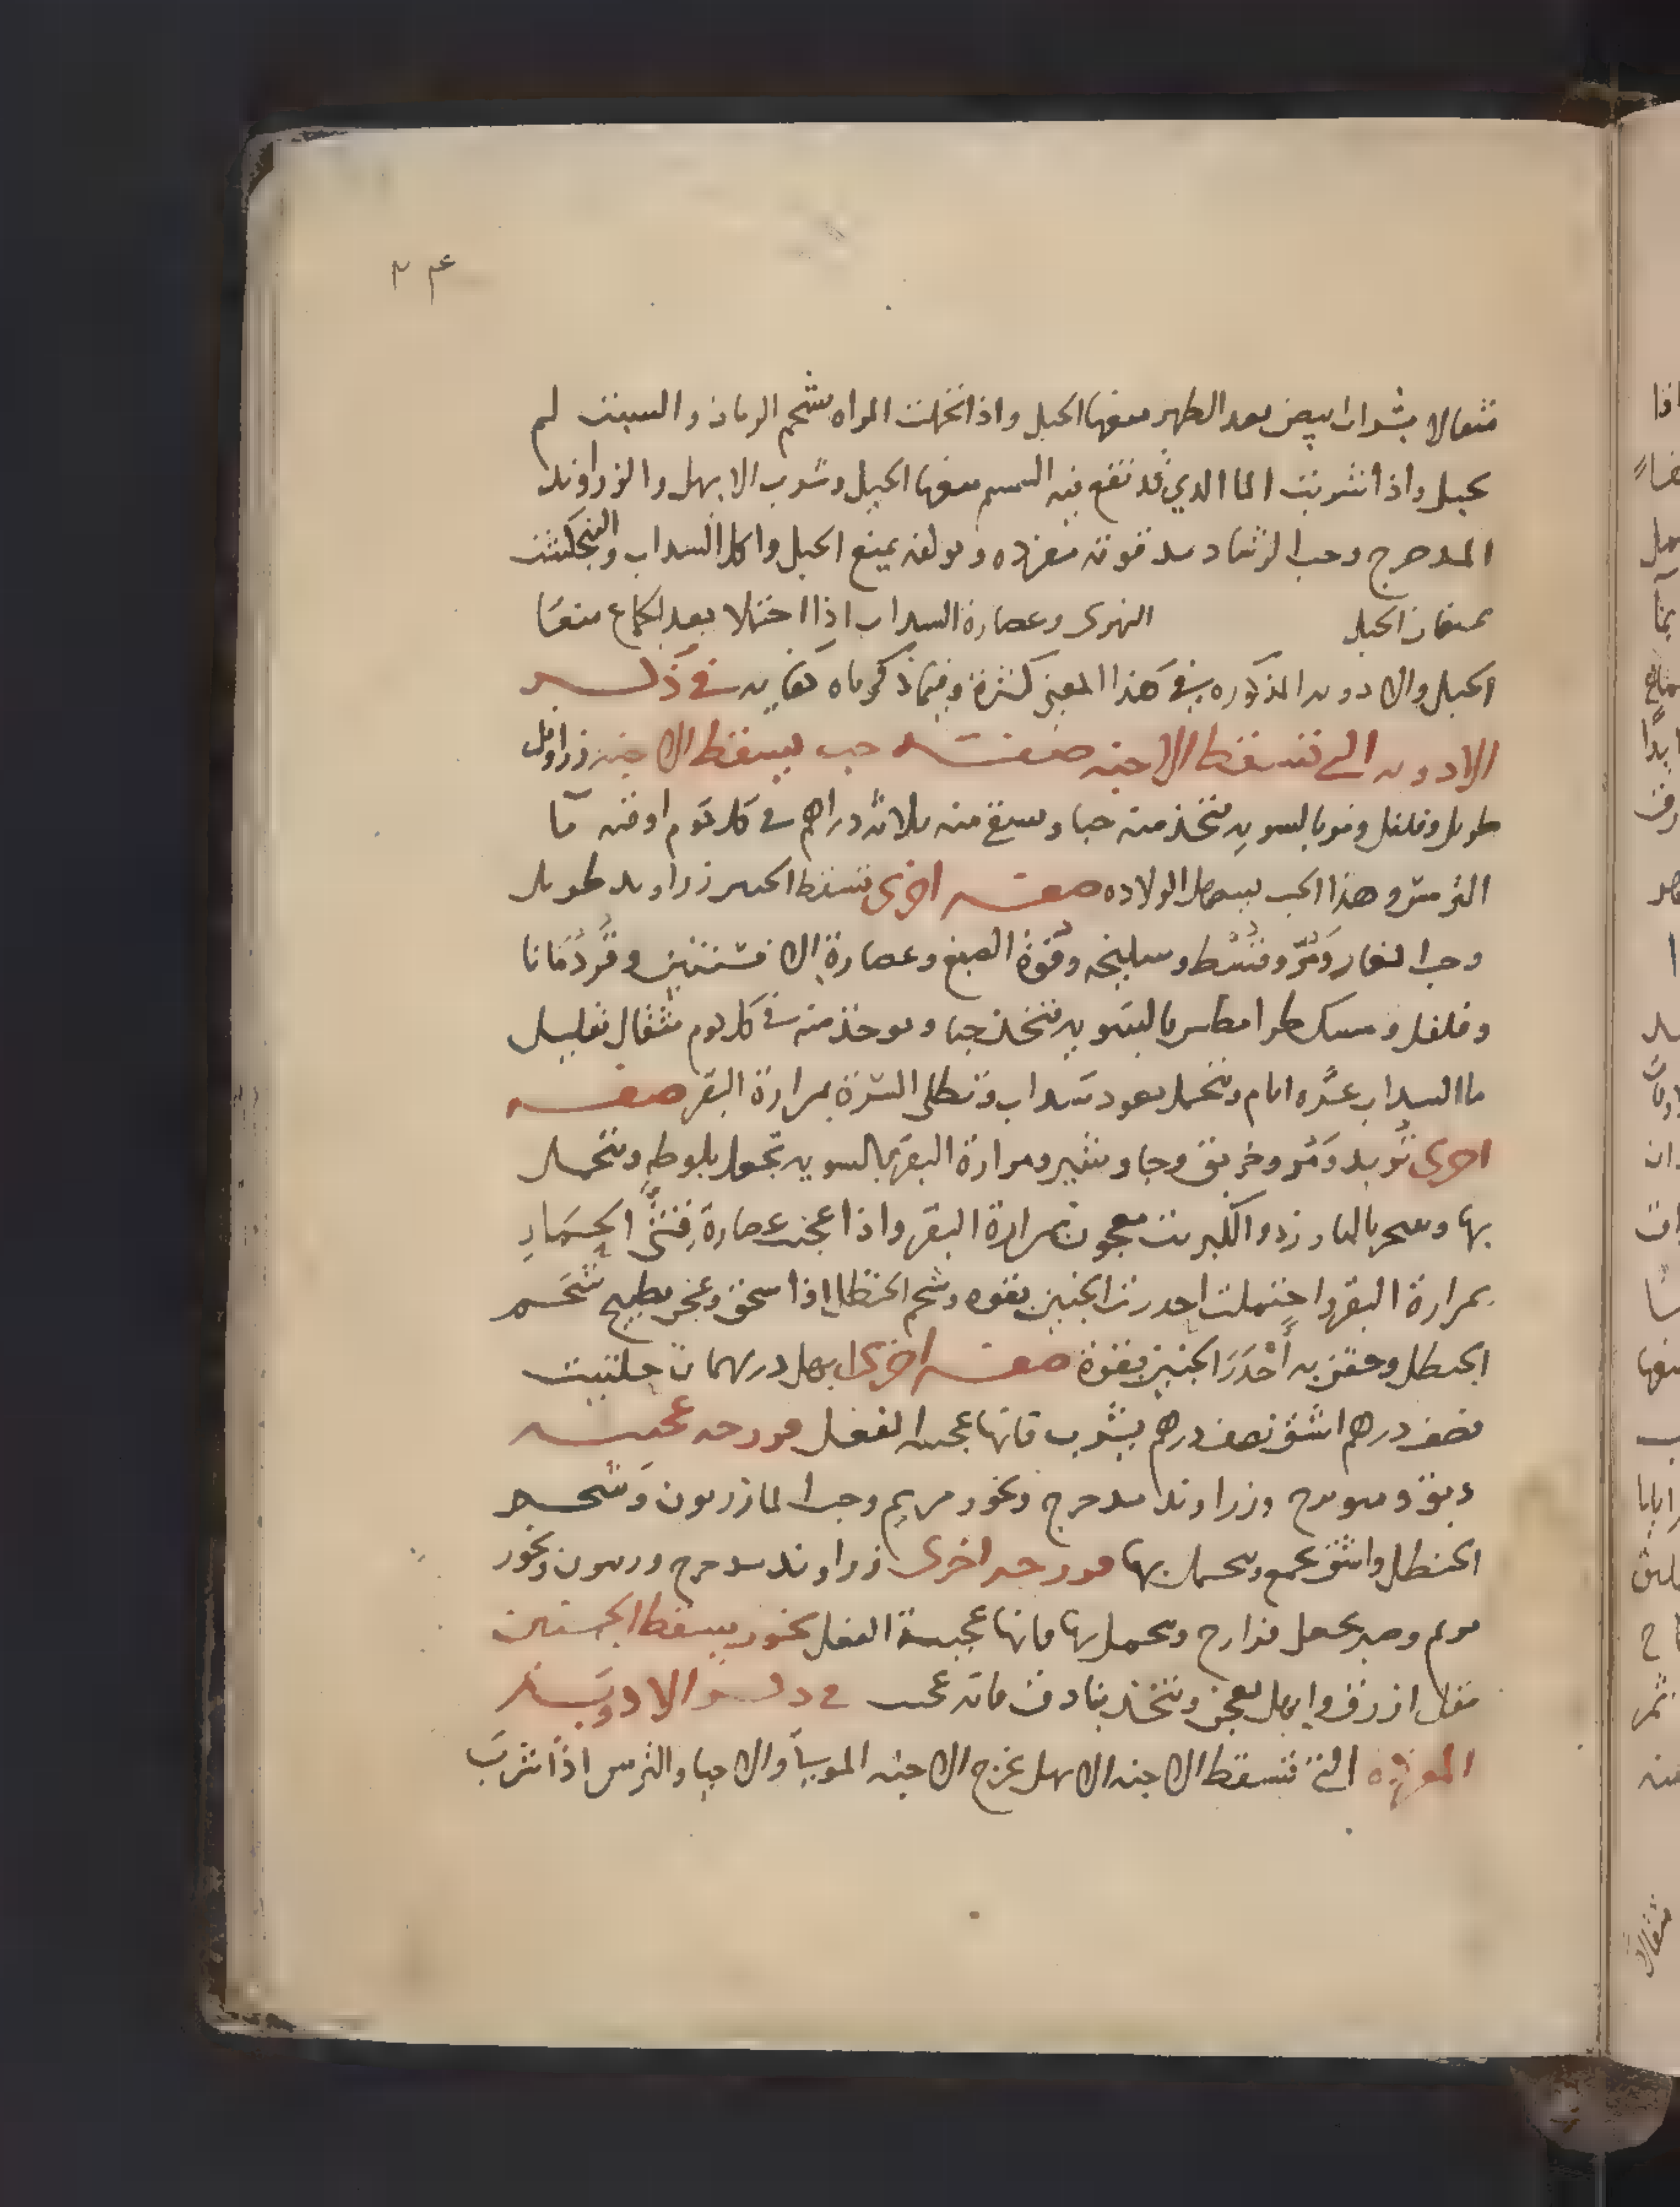 ٢٤
مثقالا بشراب ابيض بعد الطهر منعها الحبل واذا تحملت المراه بشحم الرمان والسبت لم
تحبل واذا شربت الما الذي قد نقع فيه السمسم منعها الحبل وشرب الابهل والزراوند
المدحرج وحب الرشاد مدقوقه مفرده ومولفه يمنع الحبل واكل السداب والبنجكشت
يمنعان الحبل النهرى وعصارة السداب اذا احتملا بعد الجماع منعا
الحبل والادويه المذكوره في هذا المعنى كثيرة وفيما ذكرناه كفايه في ذكر
الادويه التي تسقط الاجنه صفة حب يسقط الاجنه زراوند
طويل وفلفل ومر بالسويه تتخذ منه حبا ويسقى منه ثلاثه دراهم في كل يوم اوقيه ما
الترمس وهذا الحب يسهل الولاده صفه اخرى تسقط الجنين زراوند طويل
وحب الغار ومُر وقُسْط وسليخه وفُوة الصبغ وعصارة الافسنتين وقردمانا
وفلفل ومسك طرامطير بالسويه تتخذ حبا ويوخذ منه في كل يوم مثقال بقليل
ما السداب عشره ايام وتحمل بعود سداب وتطلى السرة بمرارة البقر صفه
اخرى تُربد ومُر وخربق وجاوشير ومرارة البقر بالسويه تجعل بلوطه وتتحمل
بها وتبخر بالبارزد والكبريت معجون بمرارة البقر واذا عجنت عصارة قثَّى الحمار
بمرارة البقر واحتملت احدرت الجنين بقوه وشحم الحنظل اذا سحق وعجن بطبيخ شحم
الحنظل وحقن به أحْدَرَ الجنين بقوة صفه اخرى ابهل درهمان حلتيت
نصف درهم اشق نصف درهم يشرب فانها عجيبه الفعل فرزجه عجيبه
دبق وميويزج وزراوند مدحرج وبخور مريم وحب المازريون وشحم
الحنظل واشق يجمع ويتحمل بها فرزجه اخرى زراوند مدحرج وزبيب وبخور
مريم وصبر يجعل فرازج ويتحمل بها فانها عجيبة الفعل بخور يسقط الجنين
مقل ازرق وابهل يعجن ويتخذ بنادق فانه عجيب في ذكر الادويه
المفرده التي تسقط الاجنه الابهل يخرج الاجنه الموتى والاحيا والترمس اذا شربت